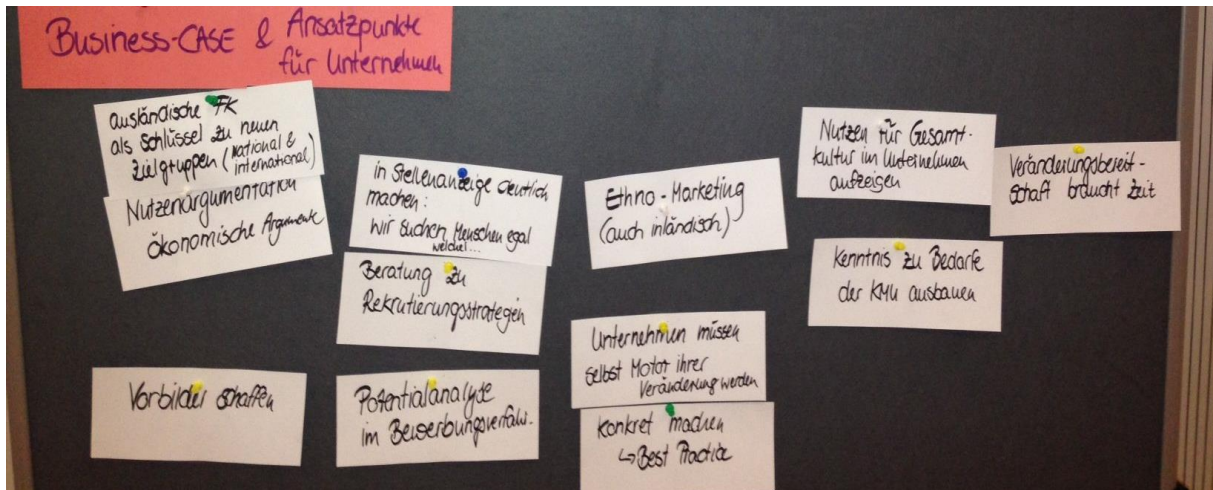 Business-CASE & Ansatzpunkte
für Unternehmen
ausländische FK
als Schlüssel zu neuen
Zielgruppen (National &
international)
Nutzenargumentation
ökonomische Argumente
Vorbilder schaffen
in Stellenanzeige deutlich
machen:
wir suchen Menschen egal
welcher...
Beratung zu
Rekrutierungsstrategien
Potentialanalyse
im Bewerbungsverfahr.
Ethno-Marketing
(auch inländisch)
Unternehmen müssen
selbst Motor ihrer
Veränderung werden
konkret machen
↳ Best Practice
Nutzen für Gesamt-
kultur im Unternehmen
aufzeigen
Kenntnis zu Bedarfe
der KMU ausbauen
Veränderungsbereit-
schaft braucht Zeit